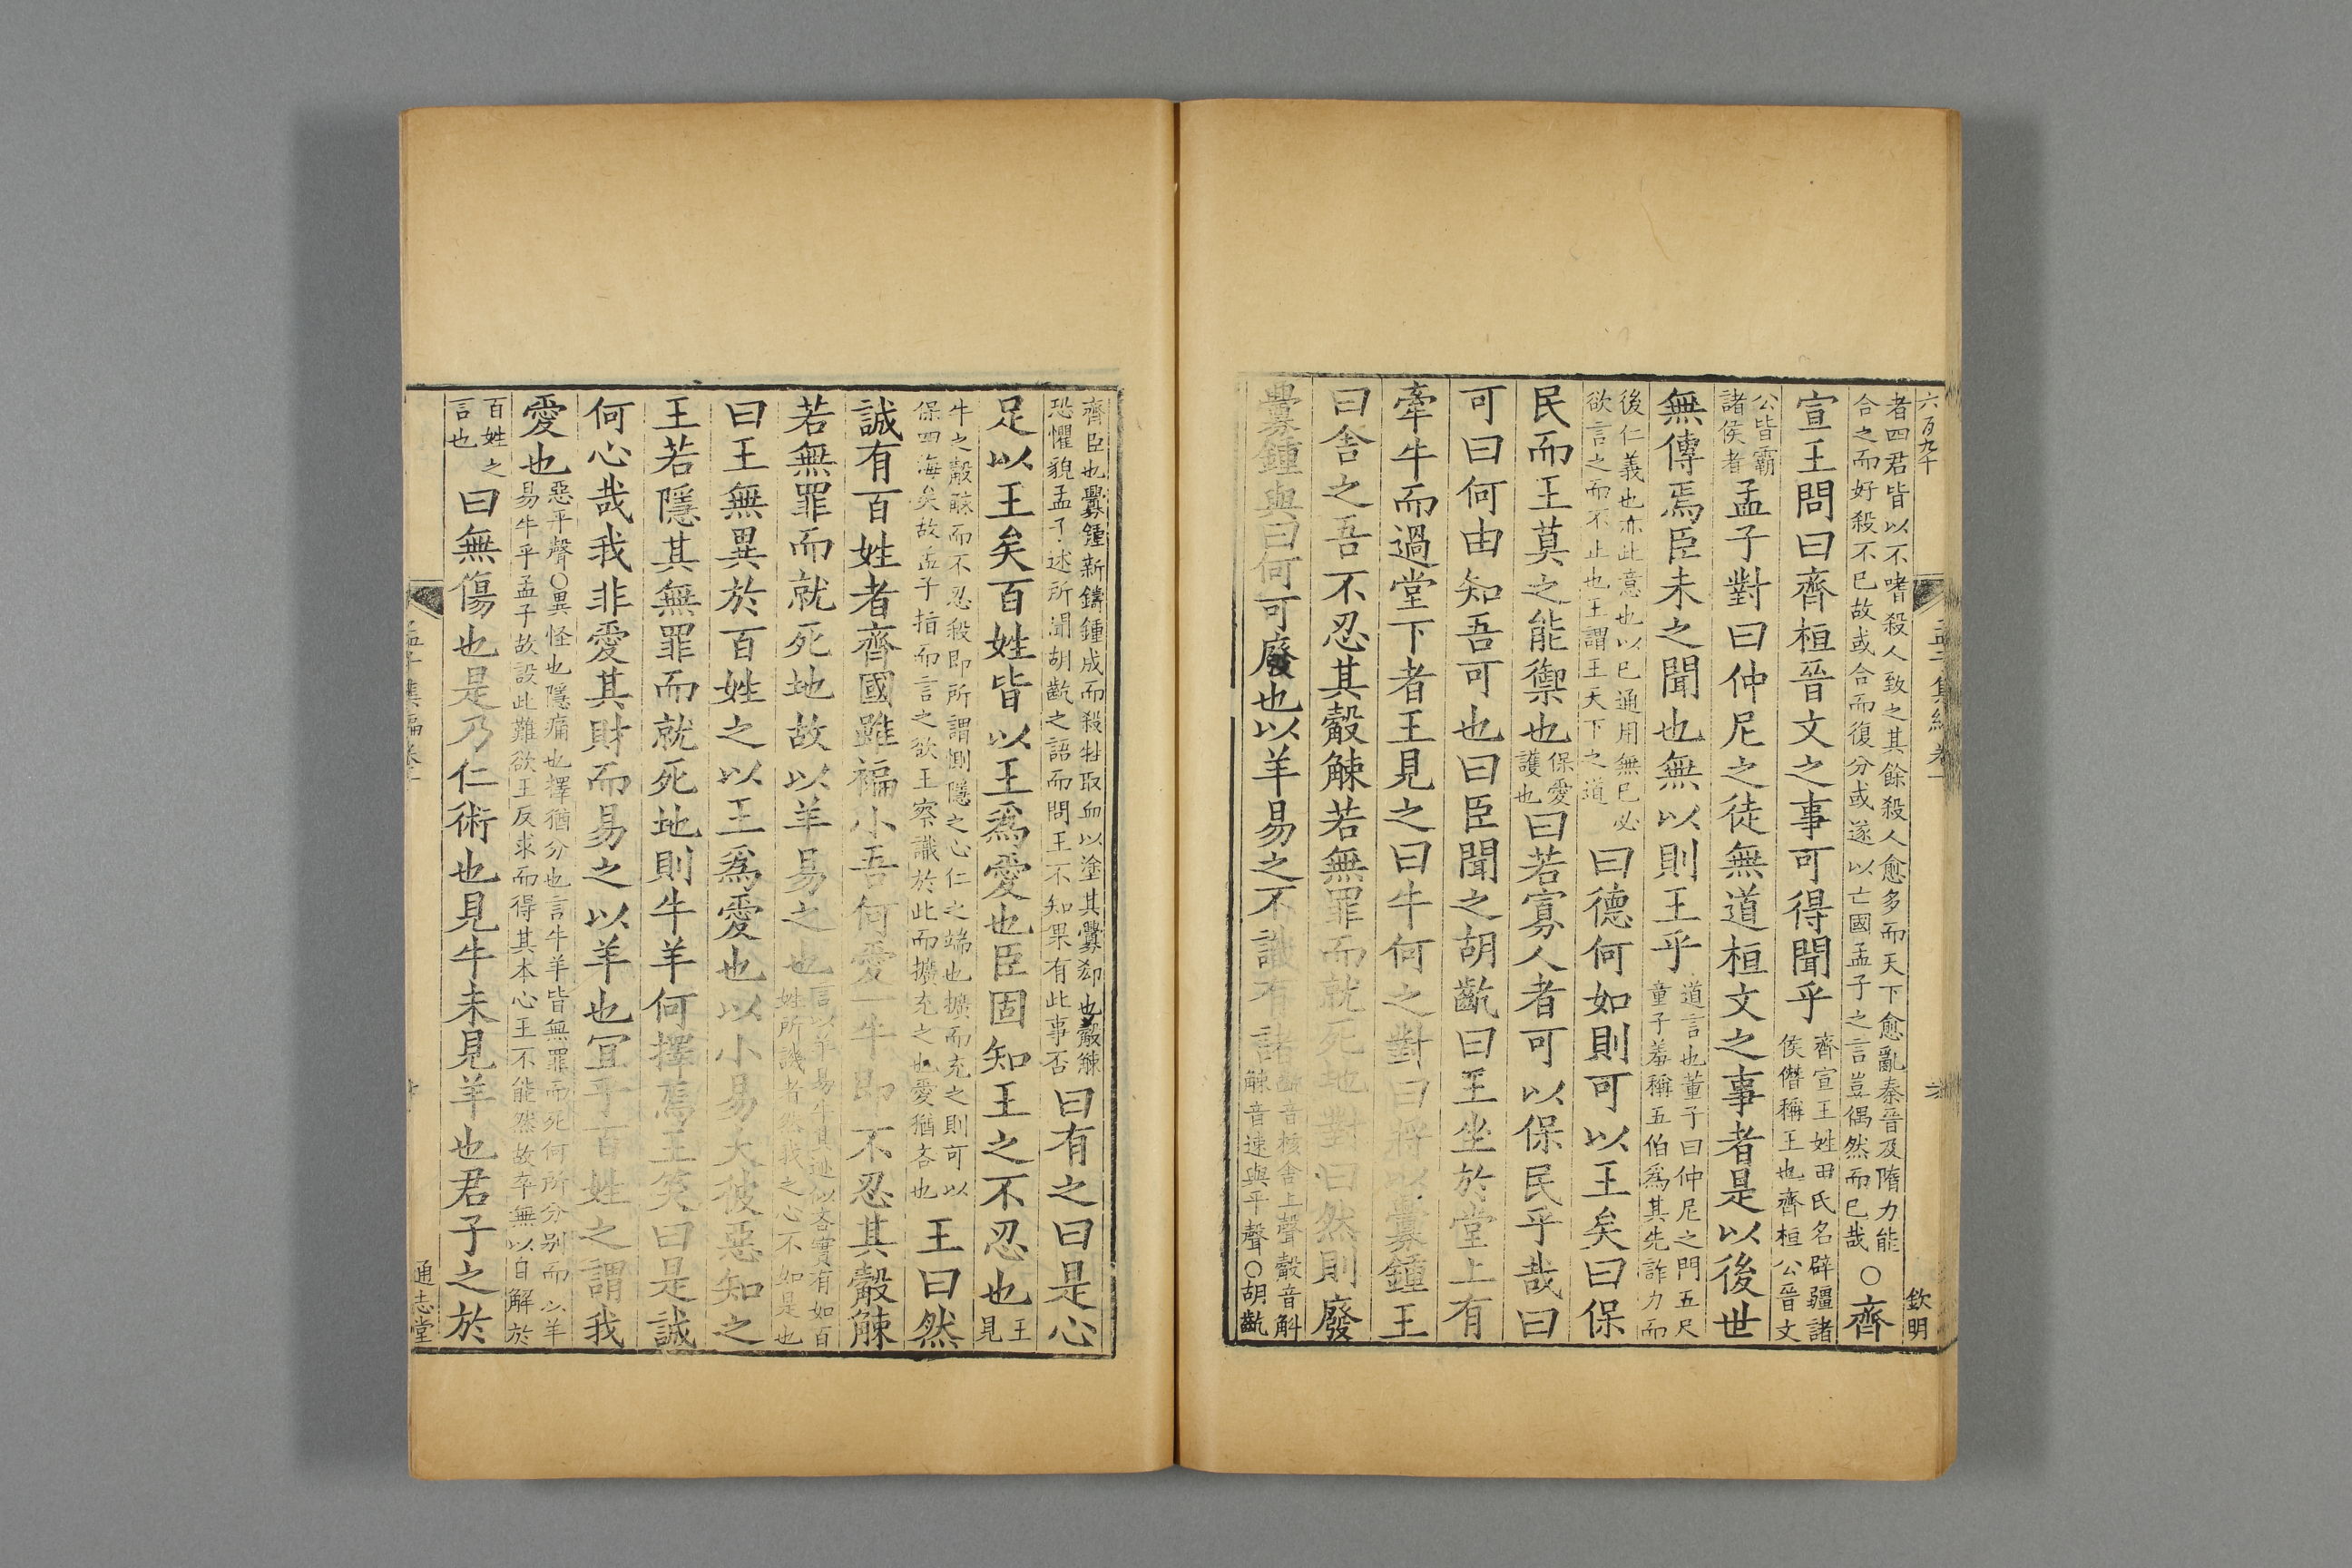 六百九十
孟子集編卷一
六
欽明
者四君皆以不嗜殺人致之其餘殺人愈多而天下愈亂秦晉及隋力能
合之而好殺不已故或合而復分或遂以亡國孟子之言豈偶然而已哉
○齊
宣王問曰齊桓晉文之事可得聞乎
齊宣王姓田氏名辟疆諸
侯僭稱王也齊桓公晉文
公皆霸
諸侯者
孟子對曰仲尼之徒無道桓文之事者是以後世
無傳焉臣未之聞也無以則王乎
道言也董子曰仲尼之門五尺
童子羞稱五伯爲其先詐力而
後仁義也亦此意也以已通用無已必
欲言之而不止也王謂王天下之道
曰德何如則可以王矣曰保
民而王莫之能禦也
保愛
護也
曰若寡人者可以保民乎哉曰
可曰何由知吾可也曰臣聞之胡齕曰王坐於堂上有
牽牛而過堂下者王見之曰牛何之對曰將以釁鍾王
曰舍之吾不忍其觳觫若無罪而就死地對曰然則廢
釁鍾與曰何可廢也以羊易之不識有諸
齕音核舍上聲觳音斛
觫音速與平聲○胡齕
齊臣也釁鍾新鑄鍾成而殺牲取血以塗其釁郤也觳觫
恐懼貌孟子述所聞胡齕之語而問王不知果有此事否
曰有之曰是心
足以王矣百姓皆以王爲愛也臣固知王之不忍也
王
見
牛之觳觫而不忍殺即所謂惻隱之心仁之端也擴而充之則可以
保四海矣故孟子指而言之欲王察識於此而擴充之也愛猶吝也
王曰然
誠有百姓者齊國雖褊小吾何愛一牛即不忍其觳觫
若無罪而就死地故以羊易之也
言以羊易牛其迹似吝實有如百
姓所譏者然我之心不如是也
曰王無異於百姓之以王爲愛也以小易大彼惡知之
王若隱其無罪而就死地則牛羊何擇焉王笑曰是誠
何心哉我非愛其財而易之以羊也宜乎百姓之謂我
愛也
惡平聲○異怪也隱痛也擇猶分也言牛羊皆無罪而死何所分別而以羊
易牛乎孟子故設此難欲王反求而得其本心王不能然故卒無以自解於
百姓之
言也
曰無傷也是乃仁術也見牛未見羊也君子之於
孟子集編卷一
通志堂